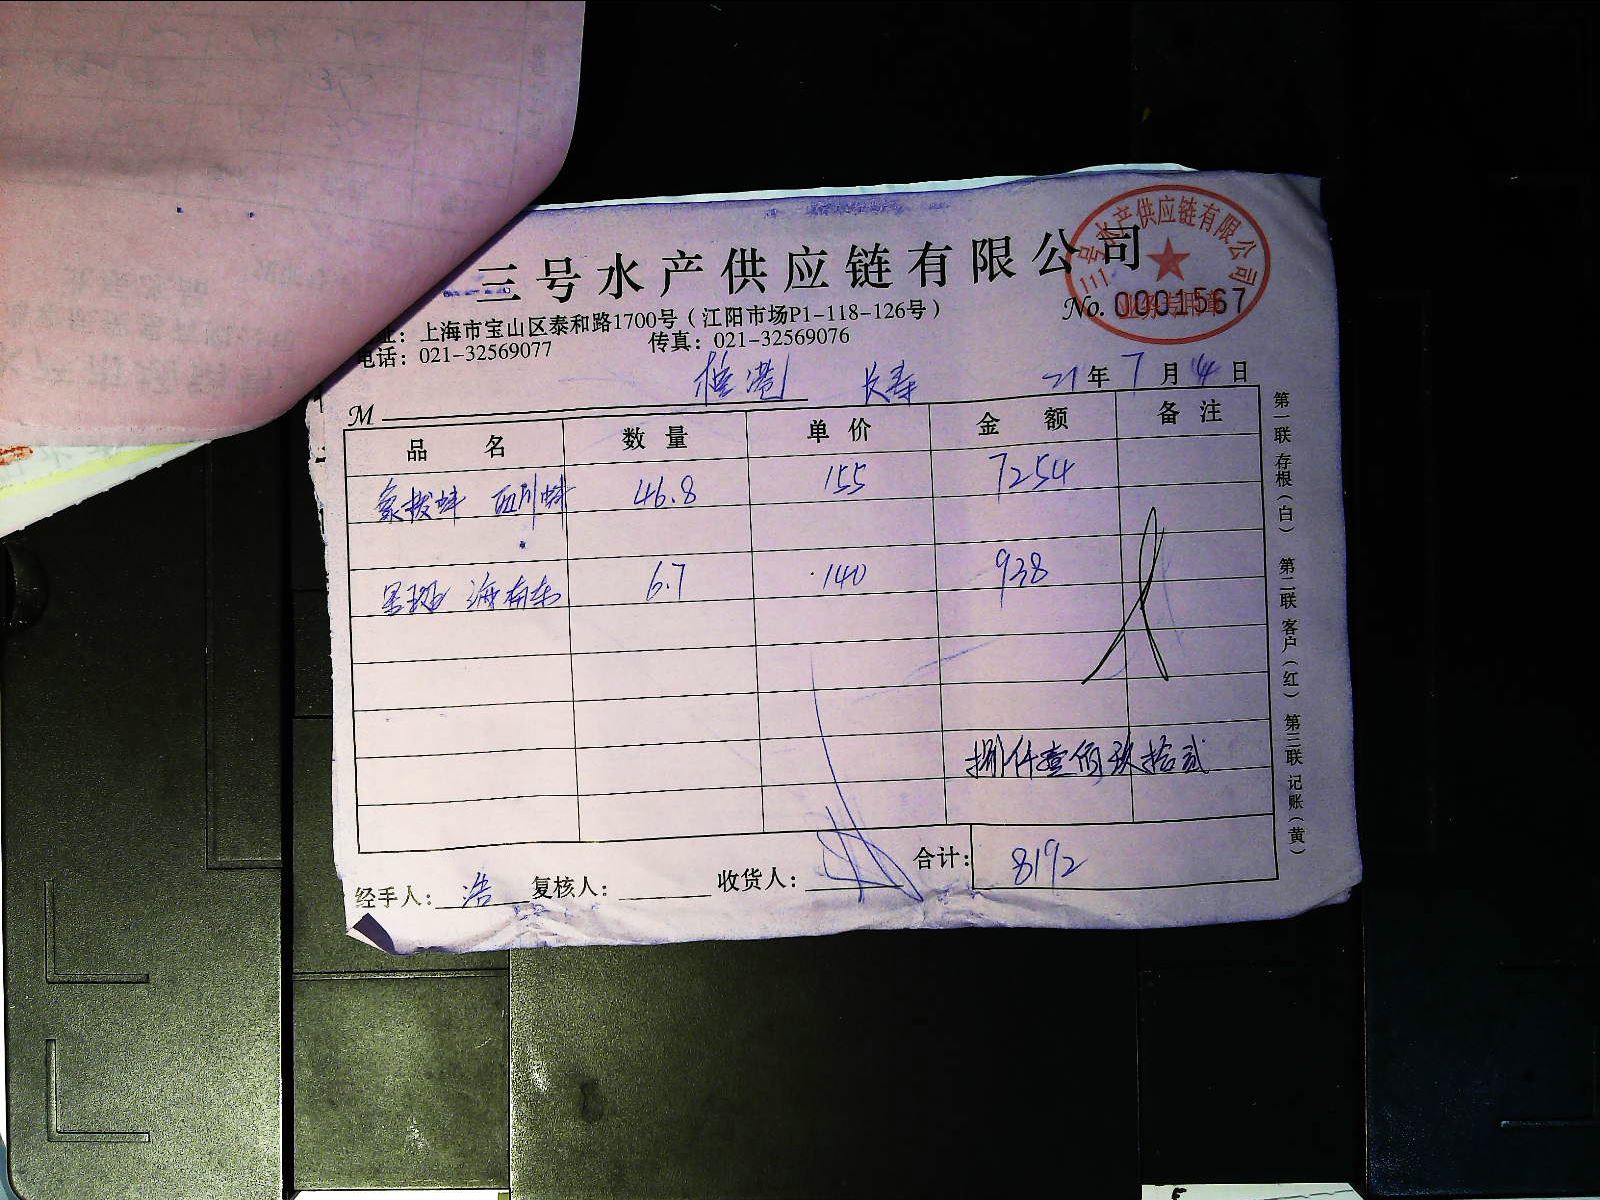 三号水产供应链有限公司
号水产供应链有限公司
业务专用章
No. 0001567
址：上海市宝山区泰和路1700号（江阳市场P1-118-126号）
电话：021-32569077 传真：021-32569076
M 长寿 21年7月14日
品名 数量 单价 金额 备注
象拔蚌 46.8 155 7254
6.7 140 938
捌仟壹佰玖拾贰
合计： 8192
经手人：浩 复核人： 收货人：
第一联 存根（白） 第二联 客户（红） 第三联 记账（黄）